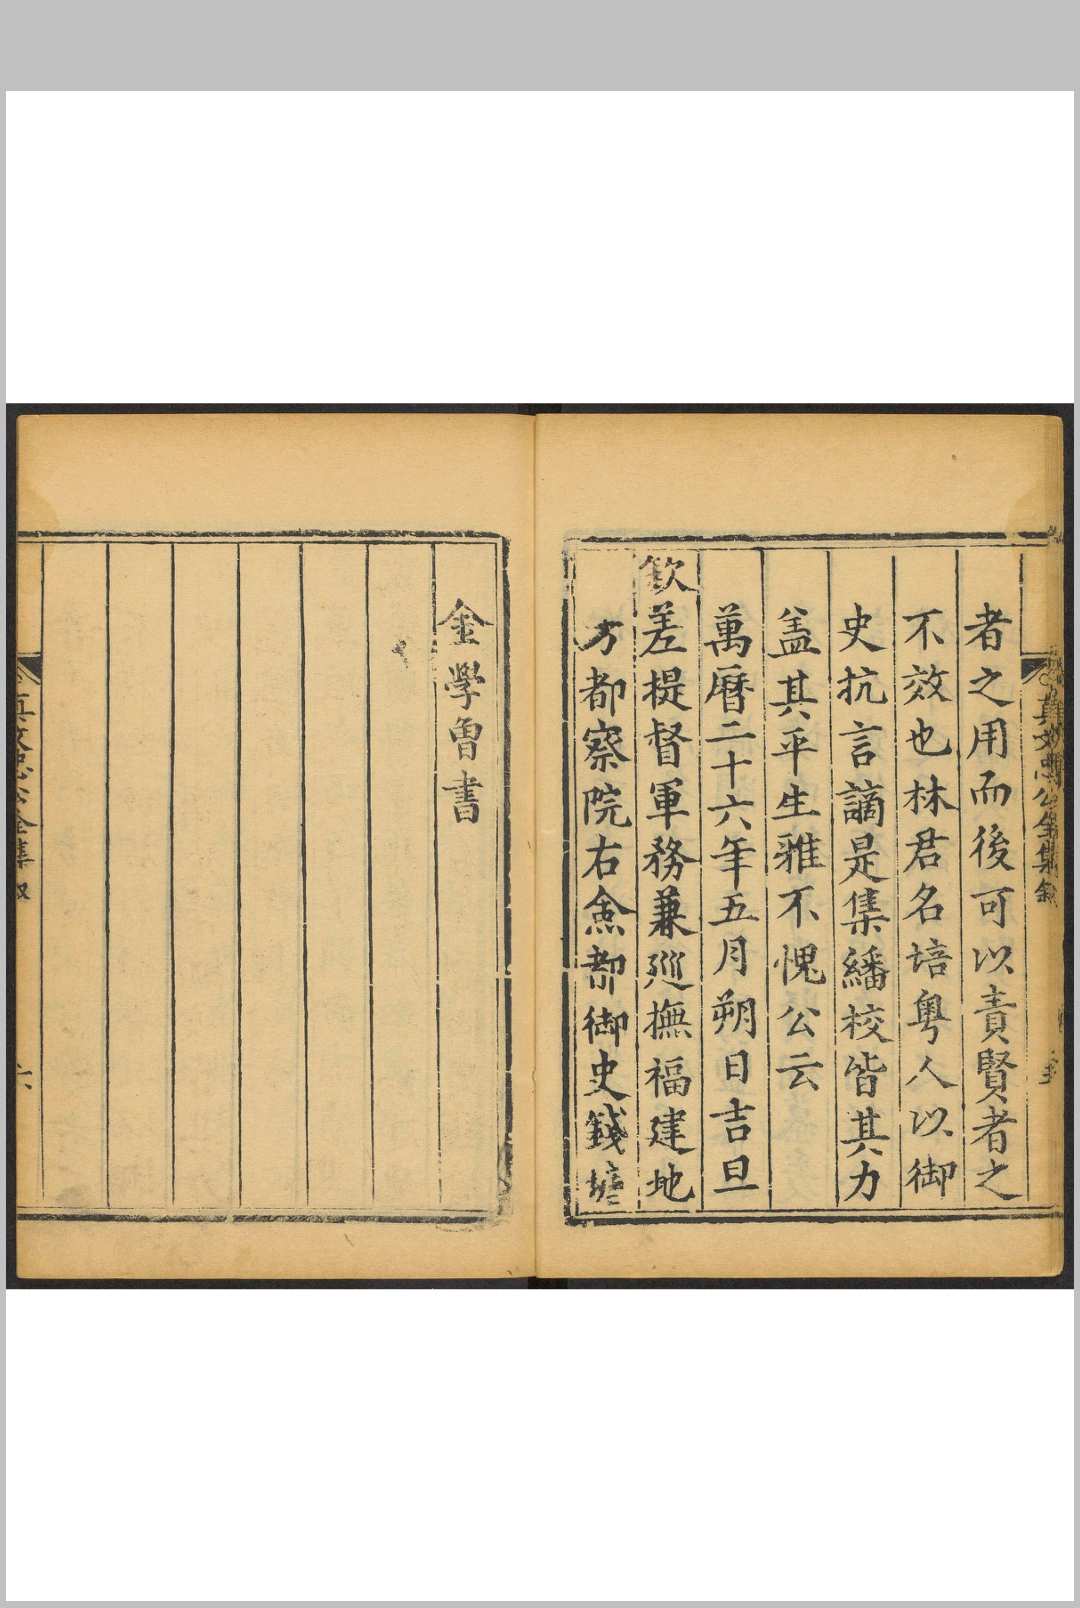 真文忠公全集叙
者之用而後可以責賢者之
不效也林君名培粤人以御
史抗言謫是集繙校皆其力
盖其平生雅不愧公云
萬曆二十六年五月朔日吉旦
欽差提督軍務兼廵撫福建地
方都察院右僉都御史錢塘
金學曾書
真文忠公全集叙
六